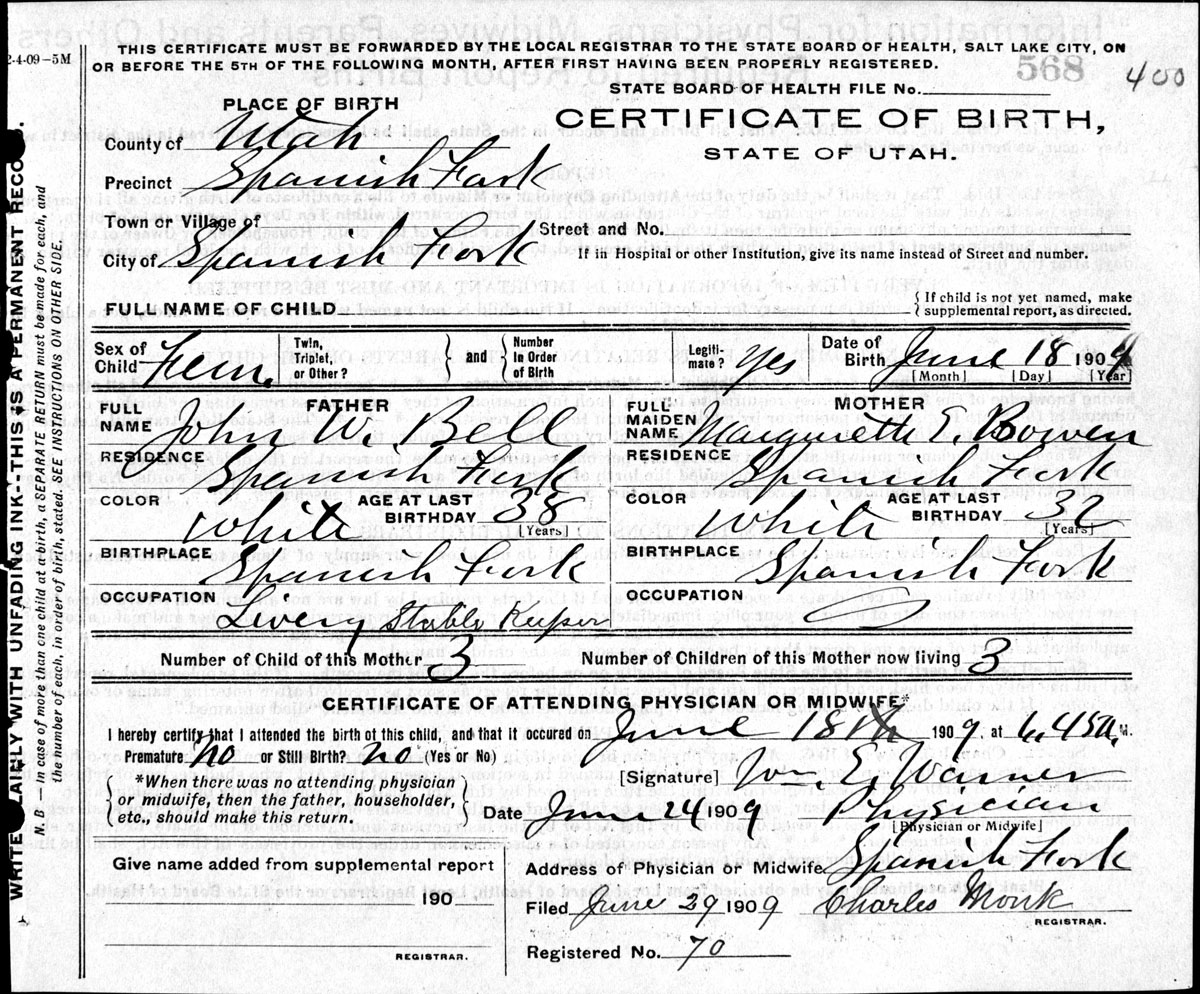 2-4-09-5M
THIS CERTIFICATE MUST BE FORWARDED BY THE LOCAL REGISTRAR TO THE STATE BOARD OF HEALTH, SALT LAKE CITY, ON
OR BEFORE THE 5TH OF THE FOLLOWING MONTH, AFTER FIRST HAVING BEEN PROPERLY REGISTERED.
568
400
STATE BOARD OF HEALTH FILE No.
PLACE OF BIRTH
CERTIFICATE OF BIRTH,
STATE OF UTAH.
County of Utah
Precinct Spanish Fork
Town or Village of
Street and No.
City of Spanish Fork
If in Hospital or other Institution, give its name instead of Street and number.
FULL NAME OF CHILD
{ If child is not yet named, make
supplemental report, as directed.
Sex of Child Fem.
Twin, Triplet, or Other?
} and {
Number in Order of Birth
Legiti-mate? Yes
Date of Birth June 18 1909
[Month] [Day] [Year]
FATHER
FULL NAME John W. Bell
RESIDENCE Spanish Fork
COLOR White
AGE AT LAST BIRTHDAY 38
[Years]
BIRTHPLACE Spanish Fork
OCCUPATION Livery Stable Keeper
MOTHER
FULL MAIDEN NAME E. Bowen
RESIDENCE Spanish Fork
COLOR White
AGE AT LAST BIRTHDAY
[Years]
BIRTHPLACE Spanish Fork
OCCUPATION
Number of Child of this Mother 3
Number of Children of this Mother now living 3
CERTIFICATE OF ATTENDING PHYSICIAN OR MIDWIFE*
I hereby certify that I attended the birth of this child, and that it occured on June 18th 1909. at 6.45 a. M.
Premature? no or Still Birth? no (Yes or No)
*When there was no attending physician
or midwife, then the father, householder,
etc., should make this return.
[Signature] Wm. E. Warner
Date June 24 1909 Physician
[Physician or Midwife]
Give name added from supplemental report
190
REGISTRAR.
Address of Physician or Midwife Spanish Fork
Filed June 29 1909 Charles Monk
REGISTRAR.
Registered No. 70
WRITE PLAINLY WITH UNFADING INK--THIS IS A PERMANENT RECO
N. B.—In case of more than one child at a birth, a SEPARATE RETURN must be made for each, and
the number of each, in order of birth, stated. SEE INSTRUCTIONS ON OTHER SIDE.